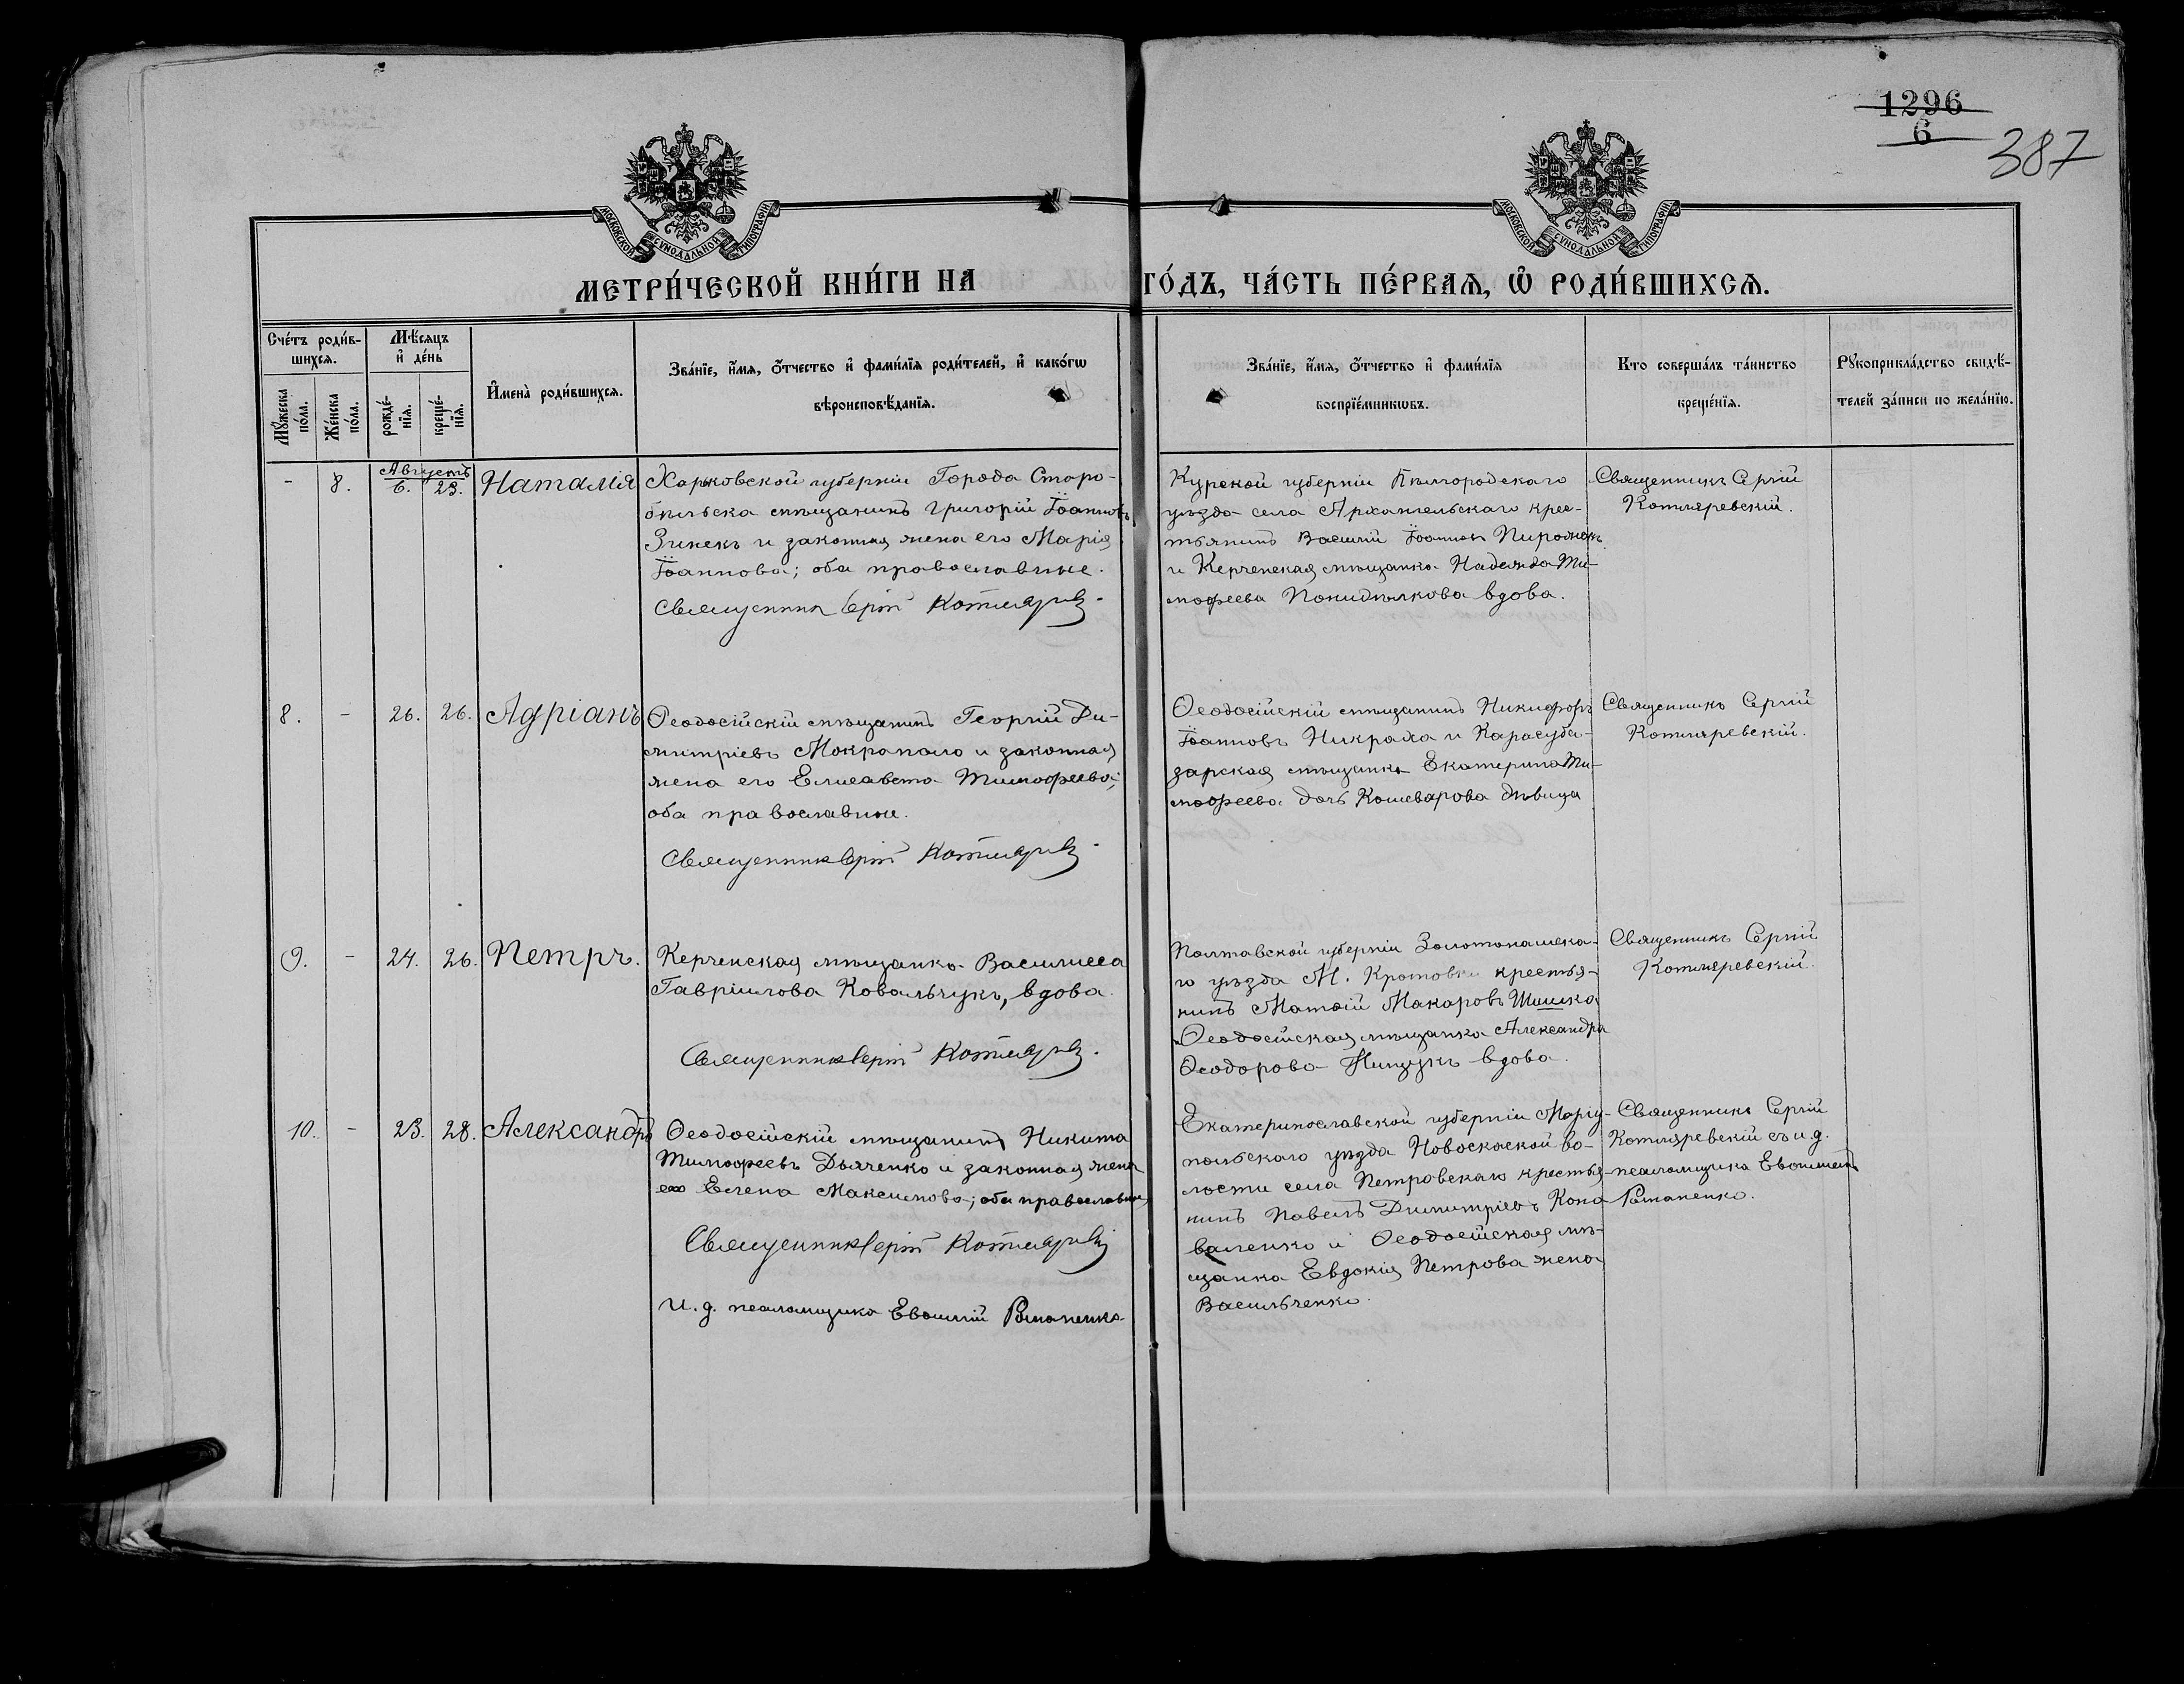 1296
6
387
МОСКОВСКОЙ СѴНОДАЛЬНОЙ ТИПОГРАФІИ
МОСКОВСКОЙ СѴНОДАЛЬНОЙ ТИПОГРАФІИ
МЕТРИ́ЧЕСКОЙ КНИ́ГИ НА ГО́ДЪ, ЧА́СТЬ ПЕ́РВАѦ, Ѡ҆ РОДИ́ВШИХСѦ.
Сче́тъ роди́в-
шихсѧ.
Мꙋ́жеска по́ла.
Же́нска по́ла.
Мѣ́сѧцъ
и҆ де́нь
рожде́-
нїѧ.
креще́-
нїѧ.
И҆мена̀ роди́вшихсѧ.
Зва́нїе, и҆́мѧ, ѻ҆́тчество и҆ фами́лїѧ роди́телей, и҆ како́гѡ
вѣроисповѣ́данїѧ.
Зва́нїе, и҆́мѧ, ѻ҆́тчество и҆ фами́лїѧ
воспрїе́мникѡвъ.
Кто соверша́лъ та́инство
креще́нїѧ.
Рꙋкоприкла́дство свидѣ́-
телей за́писи по жела́нїю.
Августъ
- 8. 6. 23. Наталія
Харьковской губерніи Города Старо-
бѣльска мѣщанинъ Григорій Іоанновъ
Зинекъ и законная жена его Марія
Іоаннова; оба православные.
Священникъ Сергій Котляревскій
Курской губерніи Бѣлгородскаго
уѣзда села Архангельскаго крес-
тьянинъ Василій Іоанновъ
и Керченская мѣщанка Надежда Ти-
мофеева вдова.
Священникъ Сергій
Котляревскій.
8. - 26. 26. Адріанъ
Ѳеодосійскій мѣщанинъ Георгій Ди-
митріевъ Мокрапало и законная
жена его Елисавета Тимофеева;
оба православные.
Священникъ Сергій Котляревскій
Ѳеодосійскій мѣщанинъ Никифоръ
Іоанновъ Никраха и Карасуба-
зарская мѣщанка Екатерина Ти-
мофеева дочь Кошеварова дѣвица
Священникъ Сергій
Котляревскій.
9. - 24. 26. Петръ.
Керченская мѣщанка Василисса
Гавріилова Ковальчукъ, вдова.
Священникъ Сергій Котляревскій
Полтавской губерніи Золотоношска-
го уѣзда М. Кротовки крестья-
нинъ Матѳій Макаровъ Шишка
Ѳеодосійская мѣщанка Александра
Ѳеодорова вдова.
Священникъ Сергій
Котляревскій.
10. - 23. 28. Александръ
Ѳеодосійскій мѣщанинъ Никита
Тимофеевъ Дьяченко и законная жена
его Елена Максимова; оба православные
Священникъ Сергій Котляревскій
И. д. псаломщика Евѳимій Романенко
Екатеринославской губерніи Маріу-
польскаго уѣзда Новоспаской во-
лости села Петровскаго крестья-
нинъ Павелъ Димитріевъ Коно-
валенко и Ѳеодосійская мѣ-
щанка Евдокія Петрова жена
Васильченко.
Священникъ Сергій
Котляревскій съ и. д.
псаломщика Евѳиміемъ
Романенко.